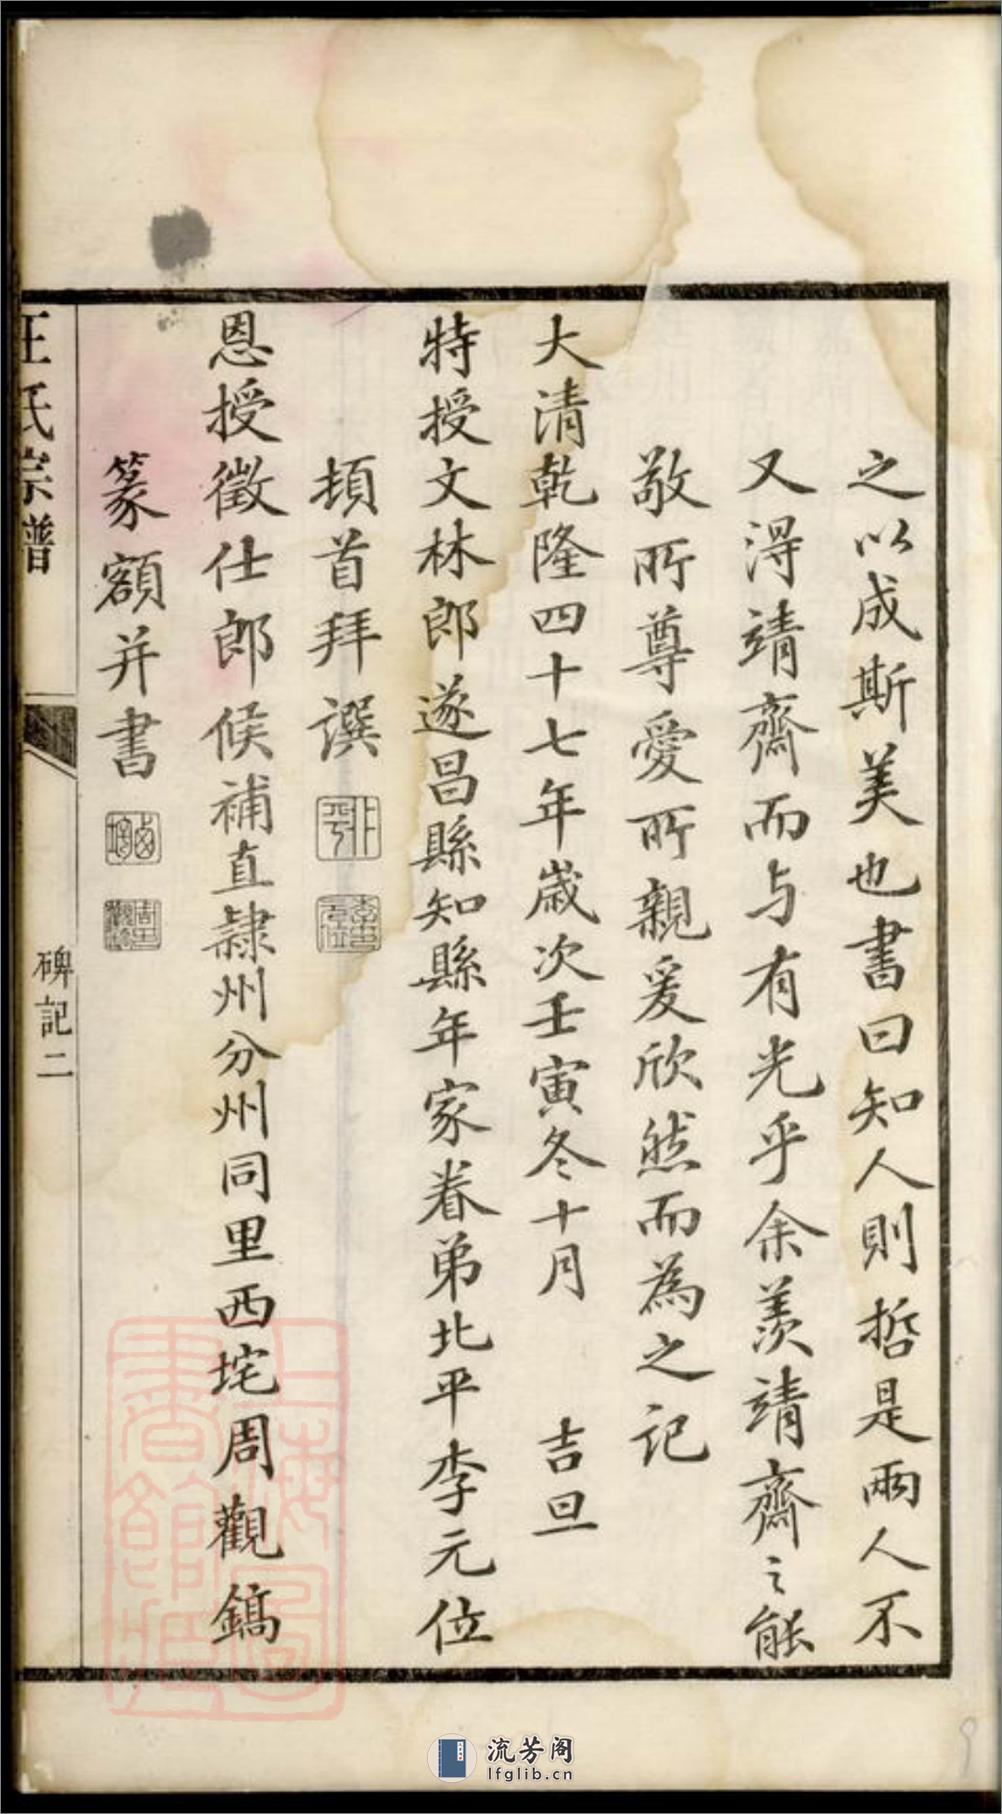 之以成斯美也書曰知人則哲是兩人不
又得靖齋而与有光乎余羨靖齋之能
敬所尊愛所親爰欣然而為之記
大清乾隆四十七年歲次壬寅冬十月 吉旦
特授文林郎遂昌縣知縣年家眷弟北平李元位
頓首拜譔
李元位
恩授徵仕郎候補直隸州分州同里西垞周觀鎬
篆額并書
氏宗譜
碑記二
上海圖書館藏
流芳阁
lfglib.cn
9